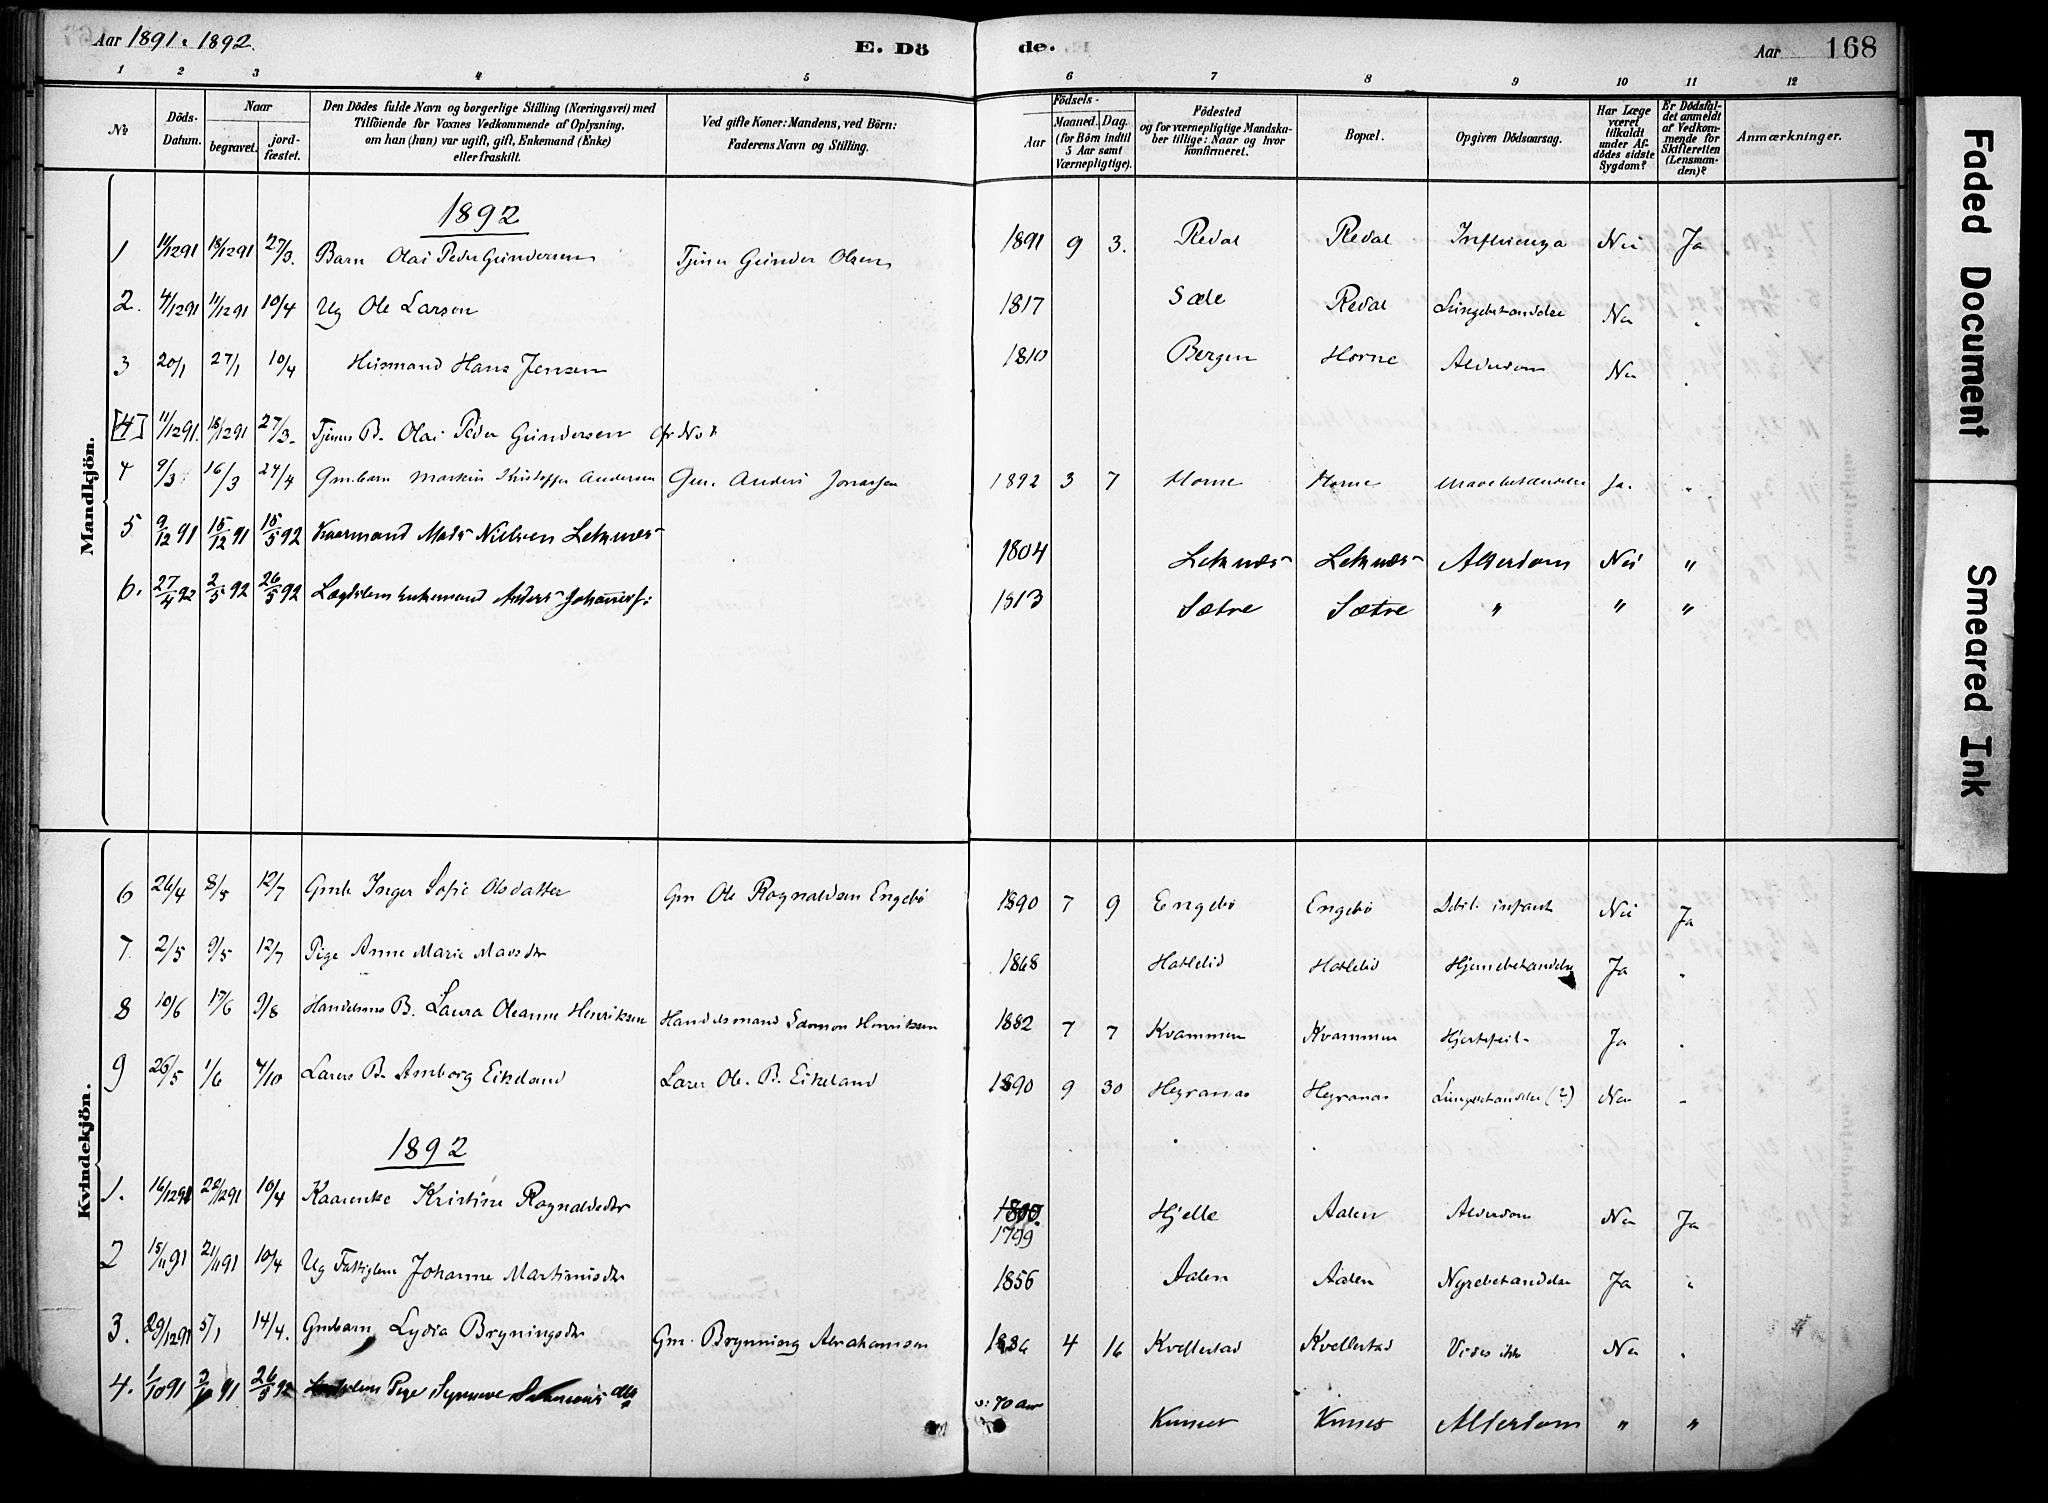 Aar 1891. 1892.
E. Dö
de.
Aar
168
1 2 3 4 5 6 7 8 9 10 11 12
No
Döds-Datum.
Naar
begravet.
jord-fæstet.
Den Dödes fulde Navn og borgerlige Stilling (Næringsvei) med
Tilföiende for Voxnes Vedkommende af Oplysning,
om han (hun) var ugift, gift, Enkemand (Enke)
eller fraskilt.
Ved gifte Koner: Mandens, ved Börn:
Faderens Navn og Stilling.
Födsels-
Aar
Maaned. Dag.
(for Börn indtil
5 Aar samt
Værnepligtige).
Födested
og for værnepligtige Mandska-
ber tillige: Naar og hvor
konfirmeret.
Bopæl.
Opgiven Dödsaarsag.
Har Læge
været
tilkaldt
under Af-
dödes sidste
Sygdom?
Er Dödsfal-
det anmeldt
af Vedkom-
mende for
Skifteretten
(Lensman-
den)?
Anmærkninger.
Mandkjön.
1892
1 11/1291 18/1291 27/3. Barn Olai Peder Gundersen Tjener Gunder Olsen 1891 9 3. Redal Redal Influenza Nei Ja
2. 4/1291 11/1291 10/4 Ug Ole Larsen 1817 Sæle Redal Lungebetændelse Nei "
3 20/1 27/1 10/4 Husmand Hans Jensen 1810 Bergen Horne Alderdom Nei "
[4] 11/1291. 18/1291 27/3. Tjeners B. Olai Peder Gundersen cfr No 1
4 9/3 16/3 24/4 Gmbarn Markus Kristoffer Andersen Gm. Anders Jonassen 1892 3 7 Horne Horne Mavebetændelse Ja. "
5 9/12 91 15/12 91 15/5 92 Kaarmand Mads Nielsen Leknes 1804 Leknæs Leknæs Alderdom Nei "
6. 27/4 92 2/5 92 26/5 92 Lægdslem Enkemand Anders Johanness: 1813 Sætre Sætre " " "
Kvindekjön.
6 26/4 8/5 12/7 Gmb Inger Sofie Olsdatter Gm Ole Ragnaldsen Engebö 1890 7 9 Engebö Engebö Debil. infant Nei Ja
7 2/5 9/5 12/7 Pige Anne Marie Madsdtr 1868 Hatlelid Hatlelid Hjernebetændelse Ja "
8 10/6 17/6 9/8 Handelsms B. Laura Oleanne Henriksen Handelsmand Salomon Henriksen 1882 7 7 Kvammen Kvammen Hjertefeil Ja "
9 26/5 1/6 4/10 Lærers B. Amborg Eikeland Lærer Ole B. Eikeland 1890 9 30 Hegranæs Hegranæs Lungebetændelse (?) Nei "
1892
1. 16/1291 22/1291 10/4 Kaarenke Kristine Ragnaldsdtr 1800. 1799 Hjelle Aalen Alderdom Nei Ja
2 15/11 91 21/11 91 10/4 Ug Fattiglem Johanne Martinusdtr 1856 Aalen Aalen Nyrebetændelse Ja "
3. 29/1291 5/1 14/4. Gmbarn Lydia Bryningsdtr Gm. Brynning Abrahamsen 1886 4 16 Kvellestad Kvellestad Vides ikke Nei "
4. 1/10 91 3/10 91 26/5 92 Pige Synneve 70 Aar Alderdom " "
Faded Document
Smeared Ink